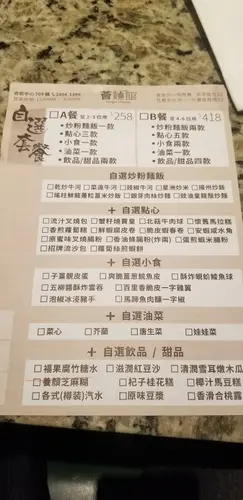 薈臻館
自選套餐
□A餐 至2-3位用 $258
□B餐 至4-6位用 $418
□炒粉麵飯一款
□點心三款
□小食一款
□油菜一款
□飲品/甜品兩款
□炒粉麵飯兩款
□點心五款
□小食兩款
□油菜一款
□飲品/甜品四款
自選炒粉麵飯
□乾炒牛河 □菜遠牛河 □豉椒牛河 □星洲炒米 □揚州炒飯
+ 自選點心
□流汁叉燒包 □蟹籽燒賣皇 □北菇牛肉球 □懷舊馬拉糕
□香煎蘿蔔糕 □鮮蝦腐皮卷 □脆皮蝦春卷 □安蝦咸水角
□原蜜味叉燒腸粉 □香油蝦腸粉(炸兩) □蛋煎蝦米腸粉
□招牌流沙包 □蘿蔔絲煎蝦餅
+ 自選小食
□子薑靚皮蛋 □爽脆薑葱鯇魚皮 □酥炸蜆蚧鯪魚球
□五柳醬酥炸雲吞 □百里香脆皮一字雞翼
□泡椒冰浸豬手 □馬蹄魚肉釀一字椒
+ 自選油菜
□菜心 □芥蘭 □唐生菜 □娃娃菜
+ 自選飲品 / 甜品
□福果腐竹糖水 □滋潤紅豆沙 □清潤雪耳燉木瓜
□養顏芝麻糊 □杞子桂花糕 □椰汁馬豆糕
□各式(樽装)汽水 □原味豆漿 □香滑合桃露